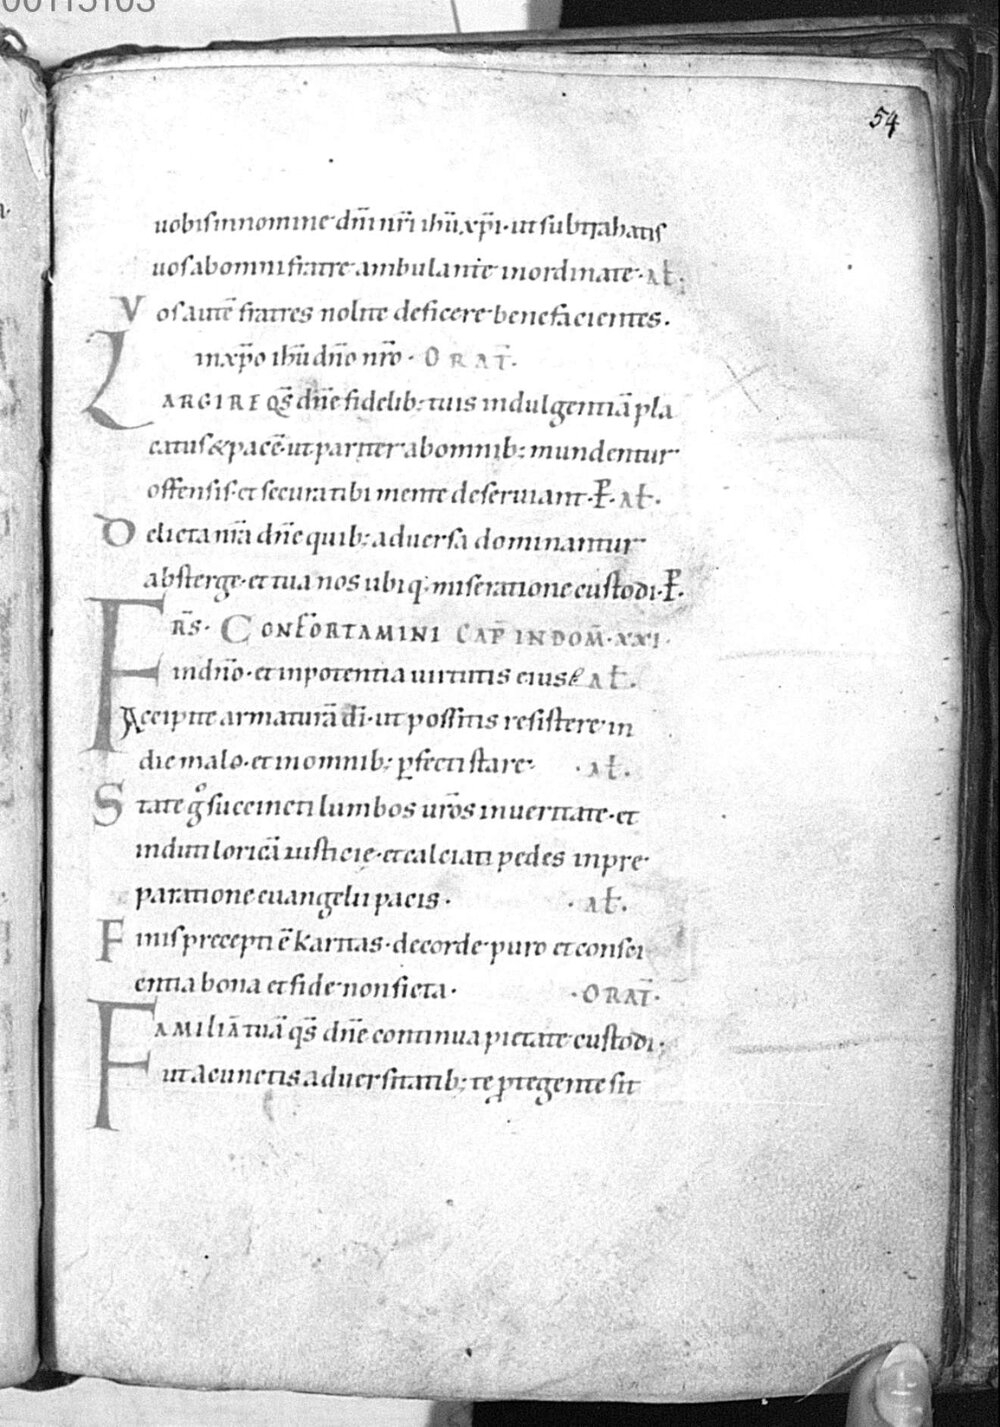 00115103
54
uobis innomine dn̄i nr̄i ihū xp̄i · ut subtrahatis
uos abomni fratre ambulante inordinate · al̄ ·
Vos autē fratres nolite deficere benefacientes ·
inxp̄o ihū dn̄o nr̄o · ORAT̄ ·
LARGIRE qs̄ dn̄e fidelib: tuis indulgentiā pla
catus & pacē · ut pariter abomnib: mundentur
offensis · et secura tibi mente deseruiant · P̄ · al̄ ·
Delicta nr̄a dn̄e quib: aduersa dominantur
absterge · et tua nos ubiq; miseratione custodi · P̄ ·
FR̄S · CONFORTAMINI CAP̄ IN DOM̄ · XXI ·
indn̄o · et inpotentia uirtutis eius al̄ ·
Accipite armaturā dī · ut possitis resistere in
die malo · et inomnib: ꝑfecti stare · al̄ ·
State gͦ succincti lumbos ur̄os inueritate · et
induti loricā iusticie · et calciati pedes inpre
paratione euangelii pacis · al̄ ·
Finis precepti ē karitas · decorde puro et consci
entia bona et fide non ficta · ORAT̄ ·
FAMILIĀ tuā qs̄ dn̄e continua pietate custodi ·
ut acunctis aduersitatib: te ꝓtegente sit